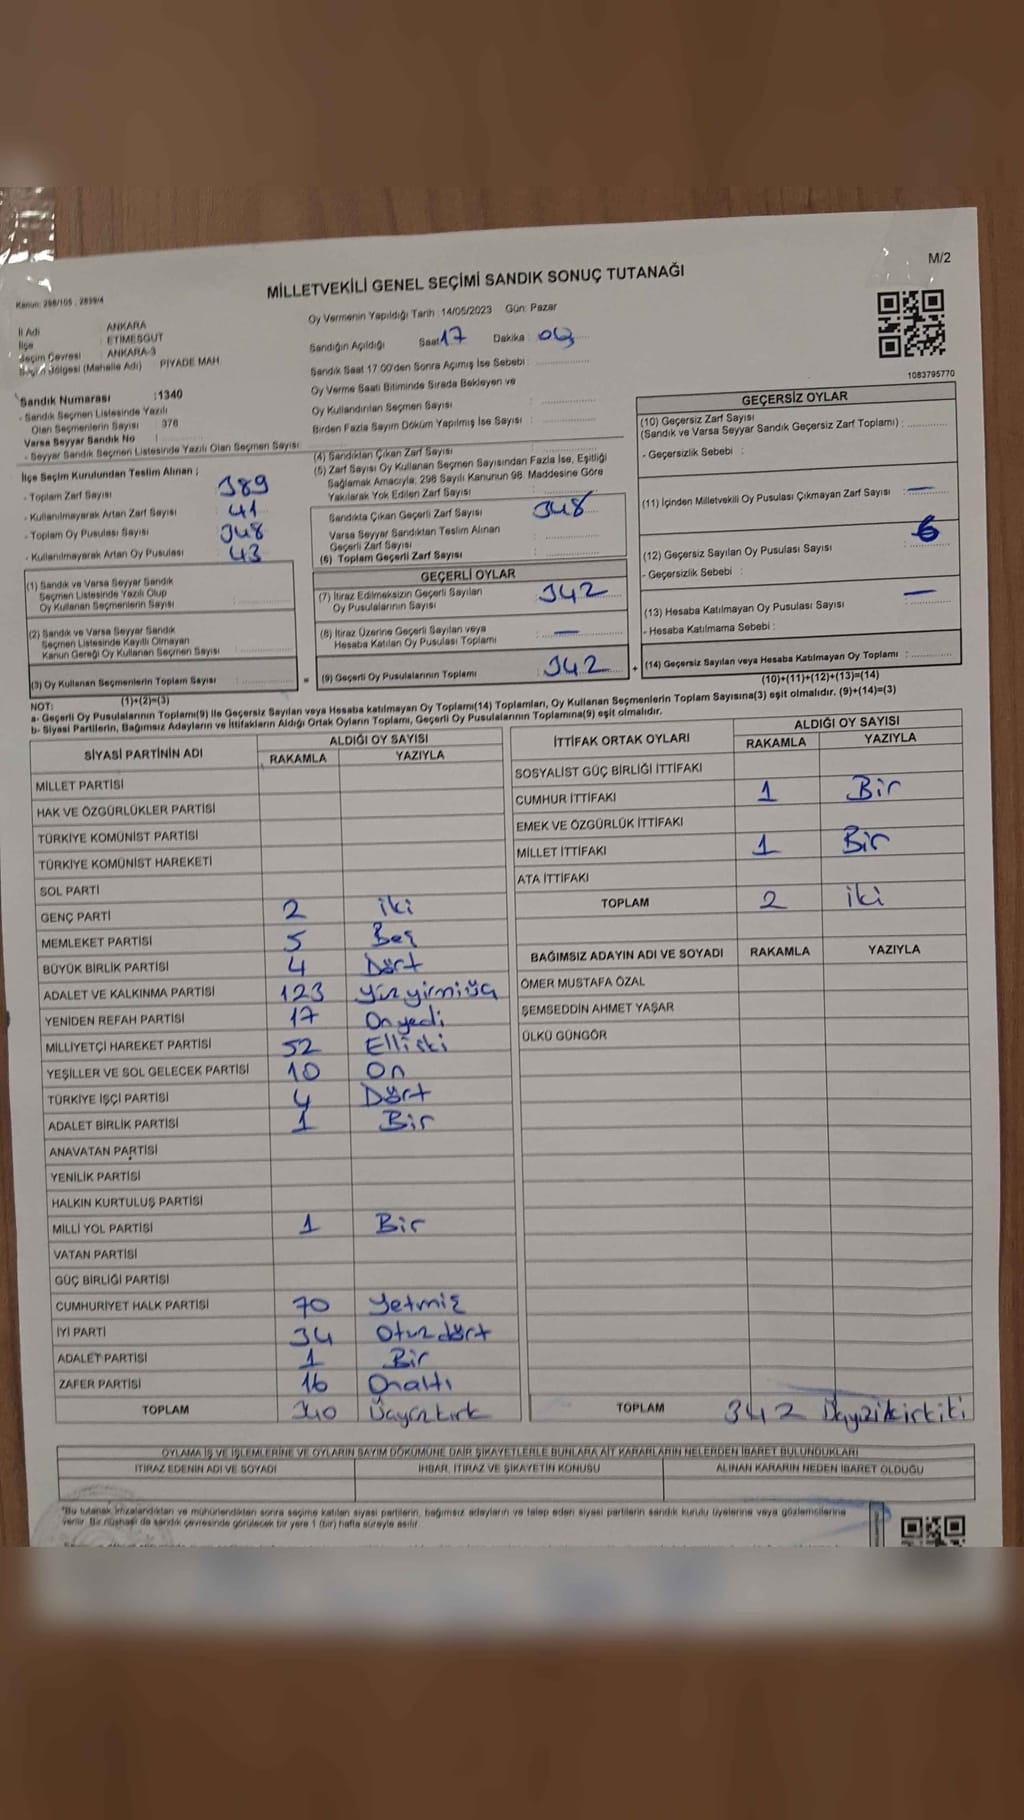 M/2
MİLLETVEKİLİ GENEL SEÇİMİ SANDIK SONUÇ TUTANAĞI
Kanun: 298/105 , 2839/4
İl Adı : ANKARA
İlçe : ETİMESGUT
Seçim Çevresi : ANKARA-3
Seçim Bölgesi (Mahalle Adı) : PİYADE MAH.
Sandık Numarası :1340
- Sandık Seçmen Listesinde Yazılı
Olan Seçmenlerin Sayısı : 376
Varsa Seyyar Sandık No :
- Seyyar Sandık Seçmen Listesinde Yazılı Olan Seçmen Sayısı
Oy Vermenin Yapıldığı Tarih :14/05/2023 Gün: Pazar
Sandığın Açıldığı Saat 17 Dakika :
Sandık Saat 17.00'den Sonra Açımış İse Sebebi :
Oy Verme Saati Bitiminde Sırada Bekleyen ve
Oy Kullandırılan Seçmen Sayısı :
Birden Fazla Sayım Döküm Yapılmış İse Sayısı :
1083795770
İlçe Seçim Kurulundan Teslim Alınan ;
- Toplam Zarf Sayısı 389
- Kullanılmayarak Artan Zarf Sayısı 41
- Toplam Oy Pusulası Sayısı 348
- Kullanılmayarak Artan Oy Pusulası 43
(1) Sandık ve Varsa Seyyar Sandık
Seçmen Listesinde Yazılı Olup
Oy Kullanan Seçmenlerin Sayısı :
(2) Sandık ve Varsa Seyyar Sandık
Seçmen Listesinde Kayıtlı Olmayan
Kanun Gereği Oy Kullanan Seçmen Sayısı :
(3) Oy Kullanan Seçmenlerin Toplam Sayısı :
(1)+(2)=(3)
(4) Sandıktan Çıkan Zarf Sayısı :
(5) Zarf Sayısı Oy Kullanan Seçmen Sayısından Fazla İse, Eşitliği
Sağlamak Amacıyla; 298 Sayılı Kanunun 98. Maddesine Göre
Yakılarak Yok Edilen Zarf Sayısı
Sandıkta Çıkan Geçerli Zarf Sayısı 348
Varsa Seyyar Sandıktan Teslim Alınan
Geçerli Zarf Sayısı
(6) Toplam Geçerli Zarf Sayısı
GEÇERLİ OYLAR
(7) İtiraz Edilmeksizin Geçerli Sayılan
Oy Pusulalarının Sayısı : 342
(8) İtiraz Üzerine Geçerli Sayılan veya
Hesaba Katılan Oy Pusulası Toplamı : —
= (9) Geçerli Oy Pusulalarının Toplamı : 342 +
GEÇERSİZ OYLAR
(10) Geçersiz Zarf Sayısı
(Sandık ve Varsa Seyyar Sandık Geçersiz Zarf Toplamı) :
- Geçersizlik Sebebi :
(11) İçinden Milletvekili Oy Pusulası Çıkmayan Zarf Sayısı : —
(12) Geçersiz Sayılan Oy Pusulası Sayısı : 6
- Geçersizlik Sebebi :
(13) Hesaba Katılmayan Oy Pusulası Sayısı : —
- Hesaba Katılmama Sebebi :
(14) Geçersiz Sayılan veya Hesaba Katılmayan Oy Toplamı :
(10)+(11)+(12)+(13)=(14)
NOT:
a- Geçerli Oy Pusulalarının Toplamı(9) ile Geçersiz Sayılan veya Hesaba katılmayan Oy Toplamı(14) Toplamları, Oy Kullanan Seçmenlerin Toplam Sayısına(3) eşit olmalıdır. (9)+(14)=(3)
b- Siyasi Partilerin, Bağımsız Adayların ve İttifakların Aldığı Ortak Oyların Toplamı, Geçerli Oy Pusulalarının Toplamına(9) eşit olmalıdır.
SİYASİ PARTİNİN ADI ALDIĞI OY SAYISI
RAKAMLA YAZIYLA
MİLLET PARTİSİ
HAK VE ÖZGÜRLÜKLER PARTİSİ
TÜRKİYE KOMÜNİST PARTİSİ
TÜRKİYE KOMÜNİST HAREKETİ
SOL PARTİ
GENÇ PARTİ 2 iki
MEMLEKET PARTİSİ 5 Beş
BÜYÜK BİRLİK PARTİSİ 4 Dört
ADALET VE KALKINMA PARTİSİ 123 Yüzyirmiüç
YENİDEN REFAH PARTİSİ 17 Onyedi
MİLLİYETÇİ HAREKET PARTİSİ 52 Elliiki
YEŞİLLER VE SOL GELECEK PARTİSİ 10 On
TÜRKİYE İŞÇİ PARTİSİ 4 Dört
ADALET BİRLİK PARTİSİ 1 Bir
ANAVATAN PARTİSİ
YENİLİK PARTİSİ
HALKIN KURTULUŞ PARTİSİ
MİLLİ YOL PARTİSİ 1 Bir
VATAN PARTİSİ
GÜÇ BİRLİĞİ PARTİSİ
CUMHURİYET HALK PARTİSİ 70 Yetmiş
İYİ PARTİ 34 Otuzdört
ADALET PARTİSİ 1 Bir
ZAFER PARTİSİ 16 Onaltı
TOPLAM 340 Üçyüzkırk
İTTİFAK ORTAK OYLARI ALDIĞI OY SAYISI
RAKAMLA YAZIYLA
SOSYALİST GÜÇ BİRLİĞİ İTTİFAKI
CUMHUR İTTİFAKI 1 Bir
EMEK VE ÖZGÜRLÜK İTTİFAKI
MİLLET İTTİFAKI 1 Bir
ATA İTTİFAKI
TOPLAM 2 iki
BAĞIMSIZ ADAYIN ADI VE SOYADI RAKAMLA YAZIYLA
ÖMER MUSTAFA ÖZAL
ŞEMSEDDİN AHMET YAŞAR
ÜLKÜ GÜNGÖR
TOPLAM 342
OYLAMA İŞ VE İŞLEMLERİNE VE OYLARIN SAYIM DÖKÜMÜNE DAİR ŞİKAYETLERLE BUNLARA AİT KARARLARIN NELERDEN İBARET BULUNDUKLARI
İTİRAZ EDENİN ADI VE SOYADI İHBAR, İTİRAZ VE ŞİKAYETİN KONUSU ALINAN KARARIN NEDEN İBARET OLDUĞU
*Bu tutanak imzalandıktan ve mühürlendikten sonra seçime katılan siyasi partilerin, bağımsız adayların ve talep eden siyasi partilerin sandık kurulu üyelerine veya gözlemcilerine
verilir. Bir nüshası da sandık çevresinde görülecek bir yere 1 (bir) hafta süreyle asılır.